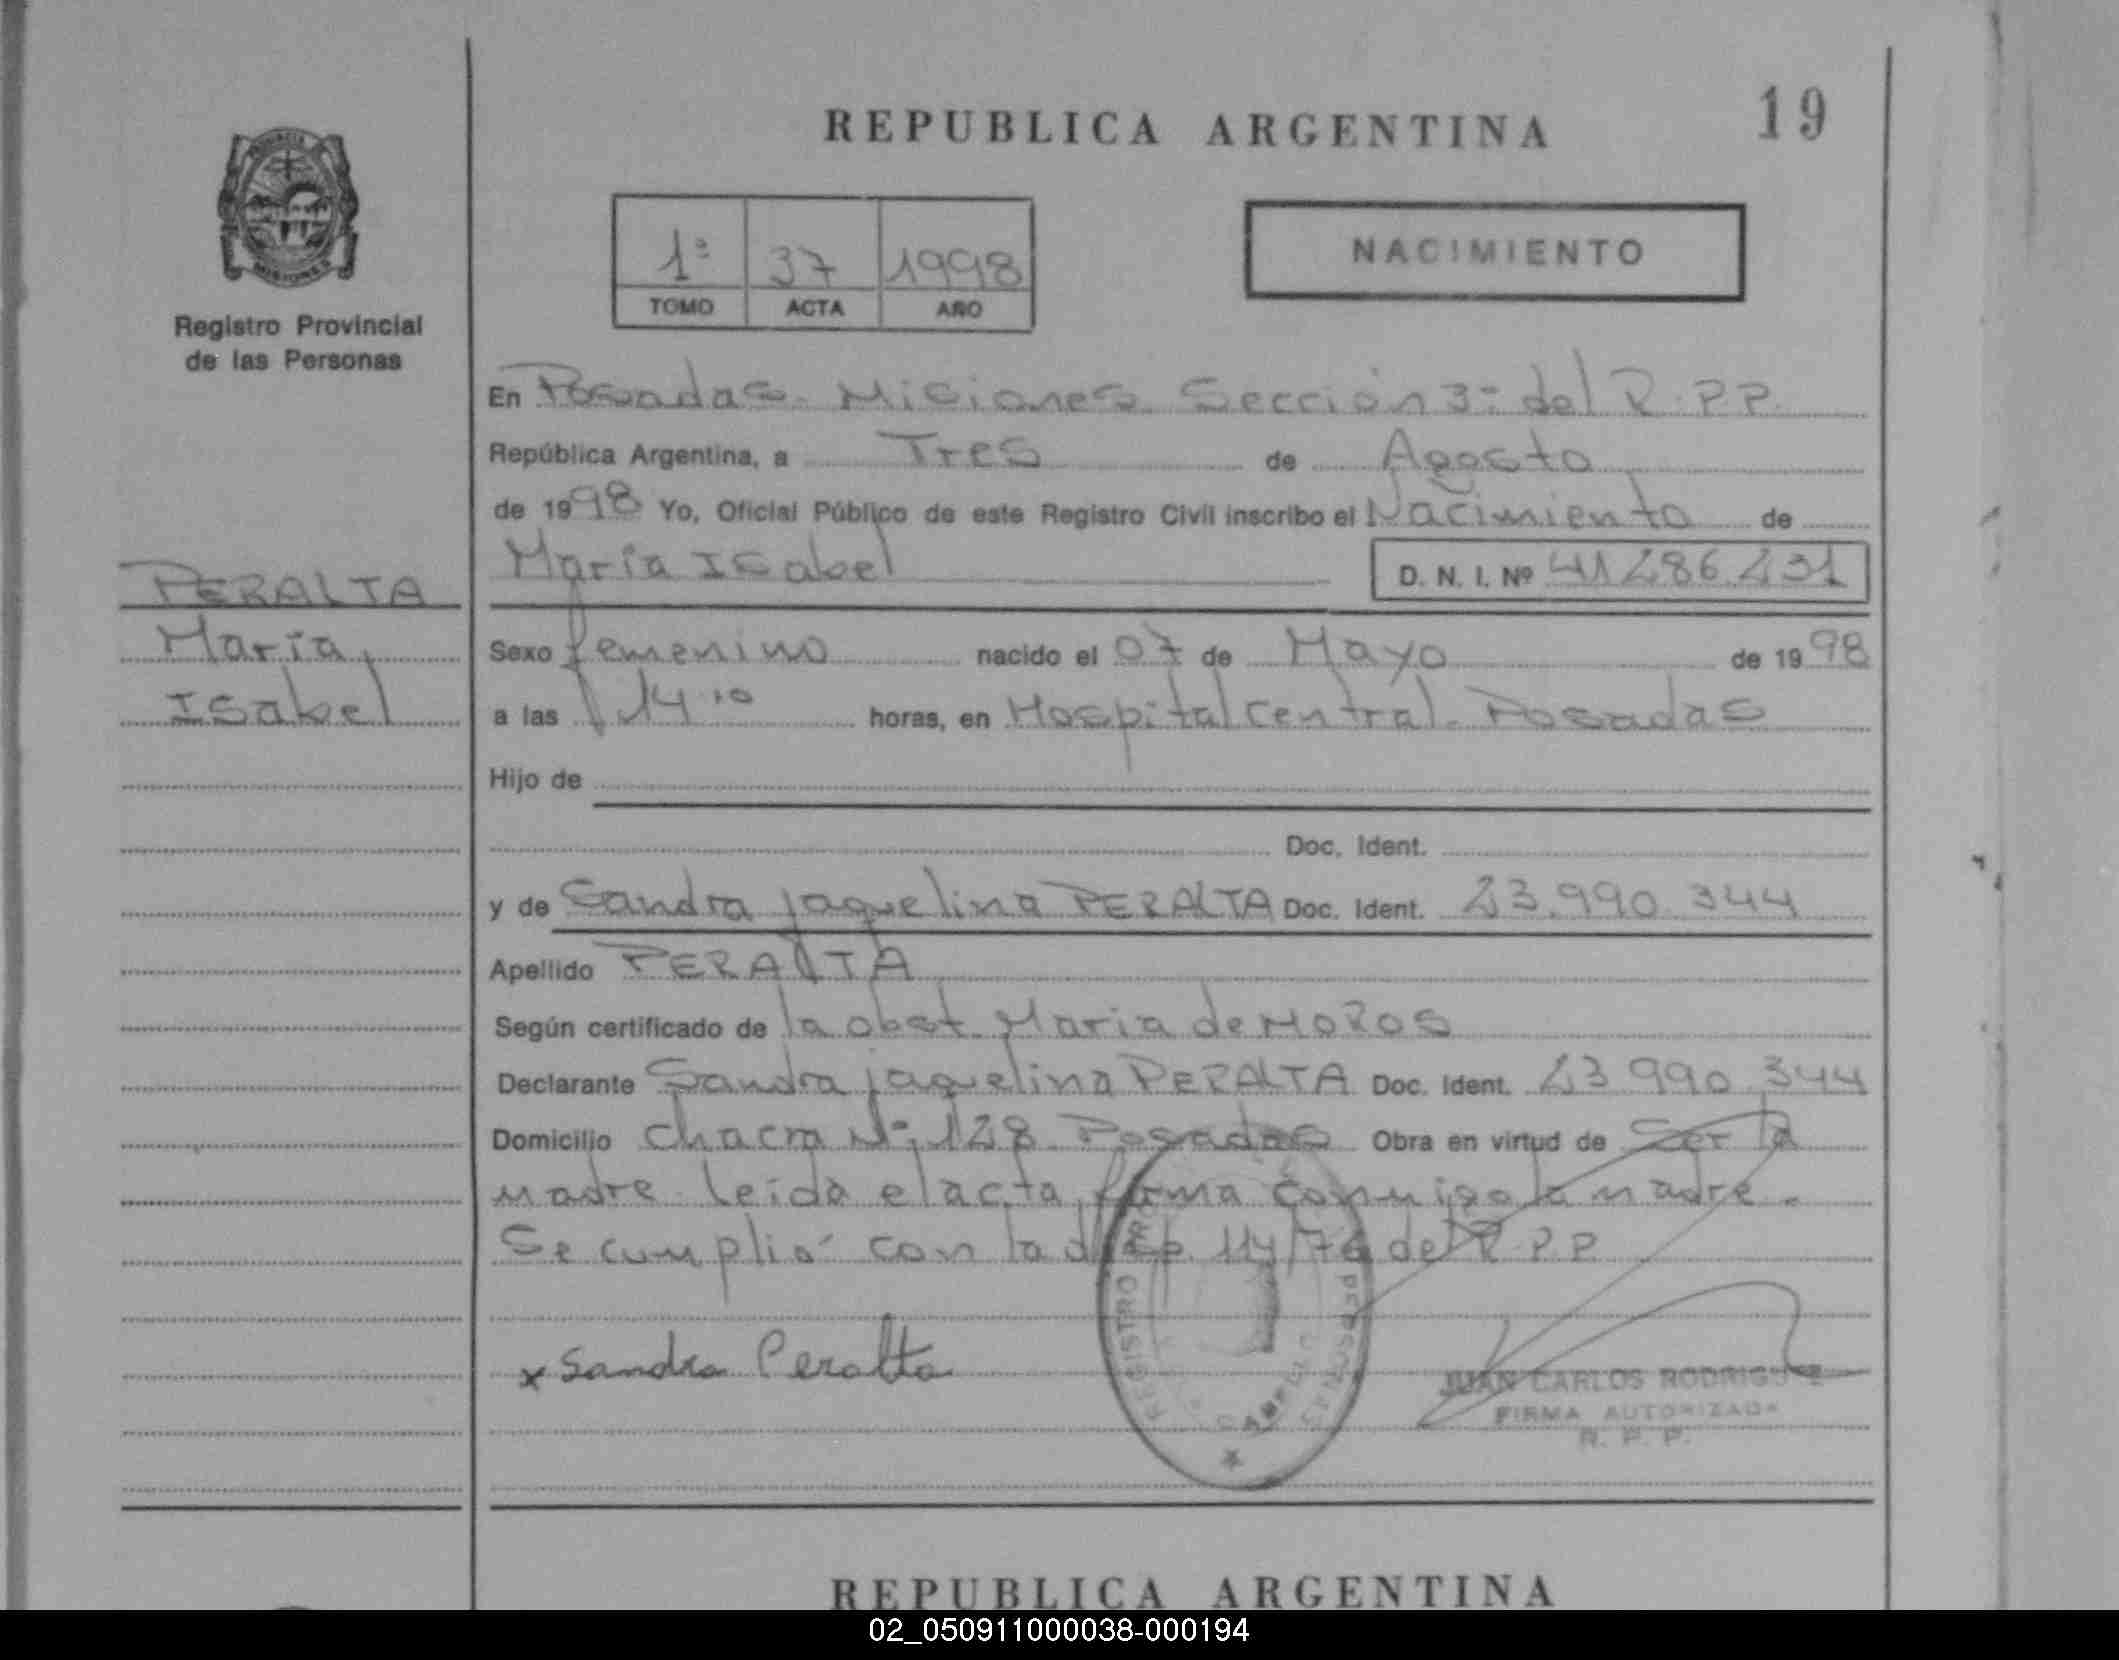 REPUBLICA ARGENTINA
19
PROVINCIA
MISIONES
Registro Provincial
de las Personas
1ª 37 1998
TOMO ACTA AÑO
NACIMIENTO
En Posadas. Misiones. Sección 3ª del R.P.P.
República Argentina, a Tres de Agosto
de 1998 Yo, Oficial Público de este Registro Civil inscribo el Nacimiento de
María Isabel D. N. I. Nº 41 286 231
PERALTA
María
Isabel
Sexo femenino nacido el 07 de Mayo de 1998
a las 14 10 horas, en Hospital Central. Posadas
Hijo de
Doc. Ident.
y de Sandra jaquelina PERALTA Doc. Ident. 23.990.344
Apellido PERALTA
Según certificado de la obst. Maria de MOROS
Declarante Sandra jaquelina PERALTA Doc. Ident. 23 990 344
Domicilio chacra Nº 128 Posadas Obra en virtud de Ser la
madre. leída el acta, firma conmigo la madre.
Se cumplió con la disp. 114/76 del R.P.P
x Sandra Peralta
REGISTRO PERSONAS
JUAN CARLOS RODRIGUEZ
FIRMA AUTORIZADA
R. P. P.
REPUBLICA ARGENTINA
02_050911000038-000194